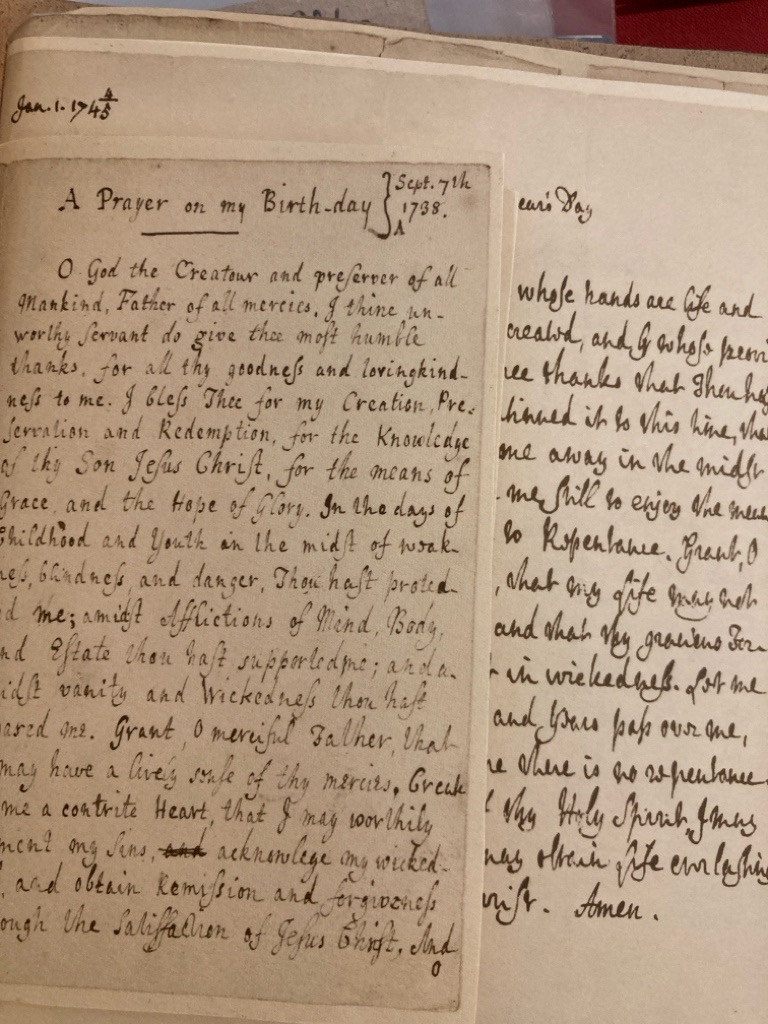 Jan. 1. 174 4/5
A Prayer on my Birth-day } Sept. 7th
1738.
A
O God the Creatour and preſerver of all
Mankind, Father of all mercies, I thine un-
worthy ſervant do give thee moſt humble
thanks, for all thy goodneſs and lovingkind-
neſs to me. I bleſs Thee for my Creation, Pre-
ſervation and Redemption, for the Knowledge
of thy Son Jeſus Chriſt, for the means of
Grace, and the Hope of Glory. In the days of
Childhood and Youth in the midſt of weak-
neſs, blindneſs, and danger, Thou haſt protect-
d me; amidſt Afflictions of Mind, Body,
nd Eſtate thou haſt supported me; and a-
idſt vanity and Wickedneſs thou haſt
ared me. Grant, O merciful Father, that
may have a lively senſe of thy mercies. Create
me a contrite Heart, that I may worthily
ment my Sins, and acknowlege my wicked-
, and obtain Remiſſion and forgiveneſs
ough the Satiſfaction of Jeſus Chriſt. And
o
ear's Day
whoſe hands are life and
created, and by whoſe
ee thanks that Thou haſ
tinued it to this time, tha
me away in the midſt
me ſtill to enjoy the mean
to Repentance. Grant, O
, that my Life may not
and that thy gracious For-
in wickedneſs. Let me
and Years paſs over me,
re there is no repentance.
thy Holy Spirit I may
may obtain Life everlaſting
riſt. Amen.